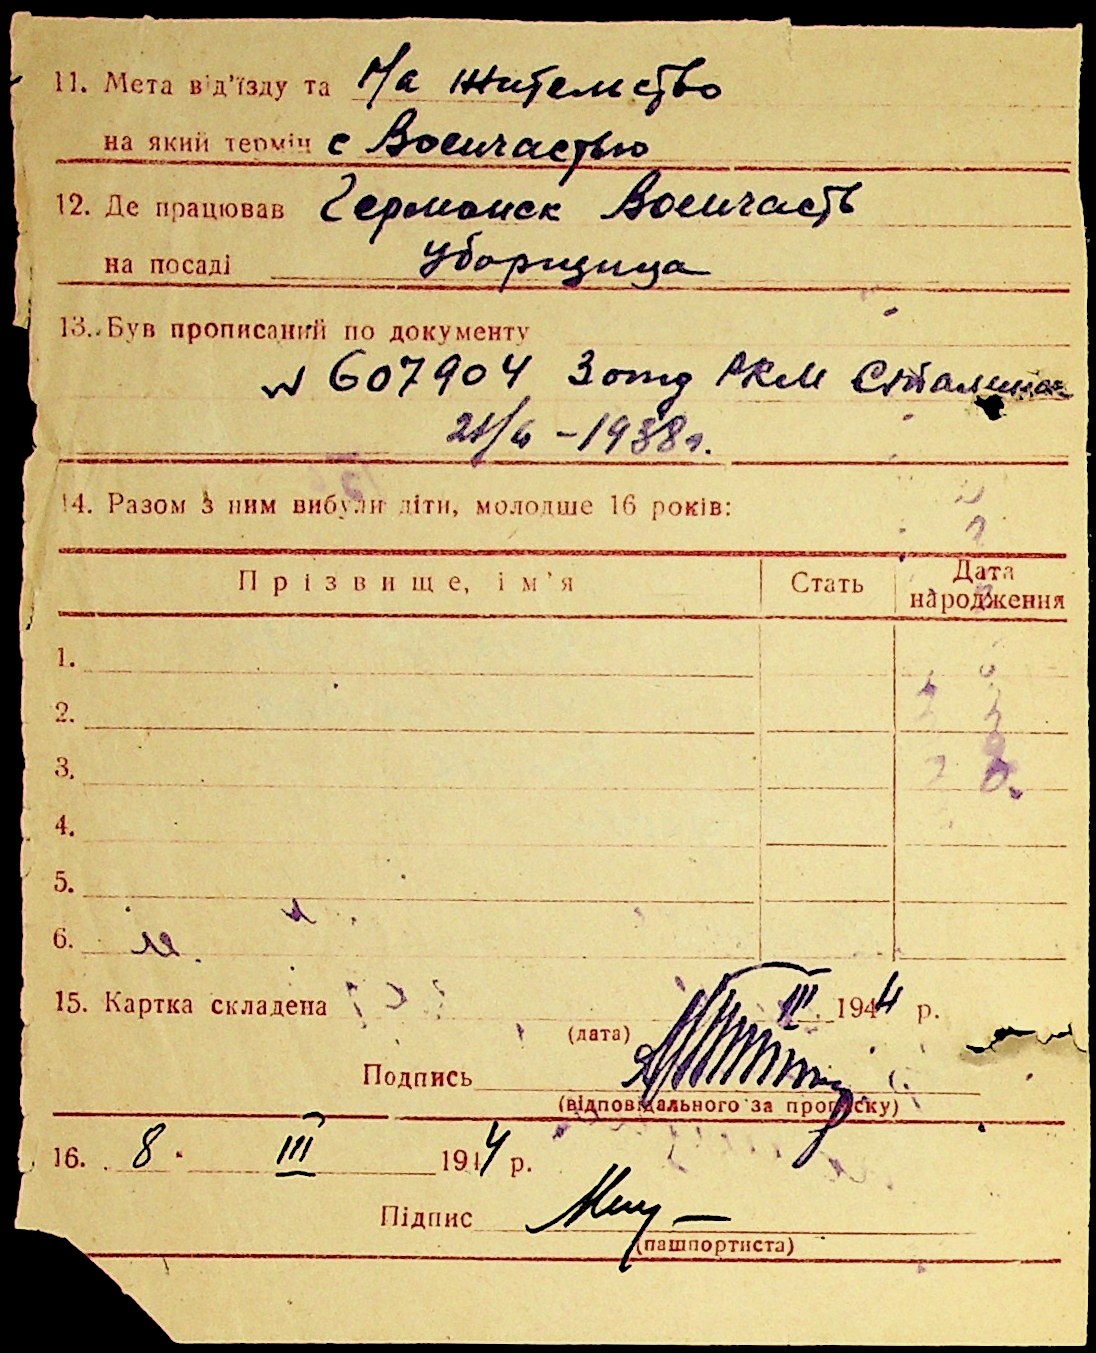 11. Мета від'їзду та На жительство
на який термін с Воинчастью
12. Де працював Германск Воинчасть
на посаді Уборщица
13. Був прописаний по документу
N 607904 3 отд РКМ Сталино
1938 г.
14. Разом з ним вибули діти, молодше 16 років:
Прізвище, ім'я Стать Дата народження
1.
2.
3.
4.
5.
6.
15. Картка складена III 1944 р.
(дата)
Подпись
(відповідального за прописку)
16. 8 III 1944 р.
Підпис
(пашпортиста)